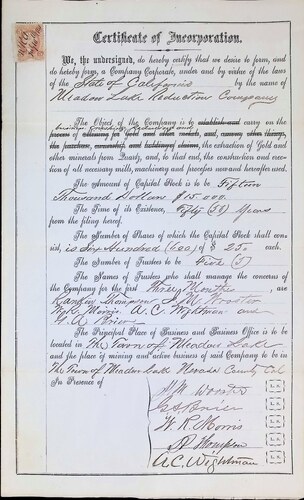 Certificate of Incorporation.
We, the undersigned, do hereby certify that we desire to form, and
do hereby form, a Company Corporate, under and by virtue of the laws
of the State of California by the name of
Meadow Lake Reduction Company
The Object of the Company is to establish and carry on the
process of obtaining for Gold and other metals, and, among other things,
the purchase, ownership and holding of claims, the extraction of Gold and
other minerals from Quartz, and, to that end, the construction and erection
of all necessary mills, machinery and processes now and hereafter used.
The Amount of Capital Stock is to be Fifteen
Thousand Dollars $15.000.
The Time of its Existence, Fifty (50) Years
from the filing hereof.
The Number of Shares of which the Capital Stock shall con-
sist, is Six Hundred (600) of $25 each.
The Number of Trustees to be Five (5)
The Names of Trustees who shall manage the concerns of
the Company for the first Three Months, are
Thompson J. M. Wooster
Morris, A. C. Wightman and
G. A. Brier
The Principal Place of Business and Business Office is to be
located in The Town of Meadow Lake
and the place of mining and active business of said Company to be in
The Town of Meadow Lake Nevada County Cal
In Presence of
Wooster
G A Brier
W. R. Morris
R Thompson
A. C. Wightman